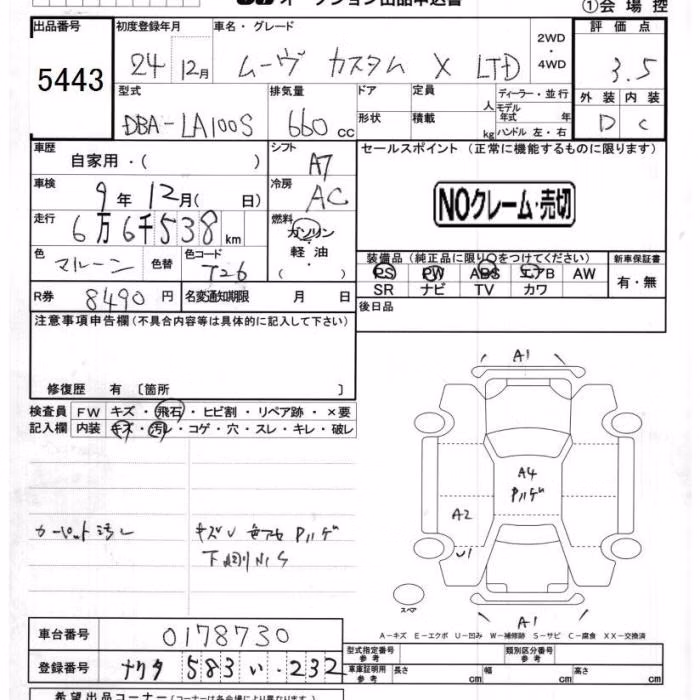 オークション出品申込書
①会場控
出品番号 5443
初度登録年月 24 12月
車名・グレード ムーヴ カスタム X LTD
2WD・4WD
評価点 3.5
型式 DBA-LA100S
排気量 660 cc
ドア
定員 人
ディーラー・並行
モデル年式 年
形状
積載 kg
ハンドル 左・右
外装 D
内装 C
車歴 自家用・( )
シフト A7
セールスポイント (正常に機能するものに限ります)
車検 9年12月( 日)
冷房 AC
NOクレーム・売切
走行 6万6千538km
燃料 ガソリン 軽油 ( ・ )
色 マルーン
色替
色コード T26
装備品 (純正品に限り○をつけてください)
新車保証書
PS PW ABS エアB AW
SR ナビ TV カワ
有・無
R券 8490円
名変通知期限 月 日
後日品
注意事項申告欄 (不具合内容等は具体的に記入して下さい)
修復歴 有 〔箇所 〕
検査員記入欄
FW キズ・飛石・ヒビ割・リペア跡・×要
内装 キズ・汚レ・コゲ・穴・スレ・キレ・破レ
A1
A4
Pハゲ
A2
U1
カーペット汚レ
キズU 色アセ Pハゲ
スペア
A1
A-キズ E-エクボ U-凹み W-補修跡 S-サビ C-腐食 XX-交換済
車台番号 0178730
型式指定番号 参考
類別区分番号 参考
登録番号 ナクタ 583 い 232
車庫証明用 参考 長さ cm 幅 cm 高さ cm
希望出品コーナー (コーナーは各会場により異なります)